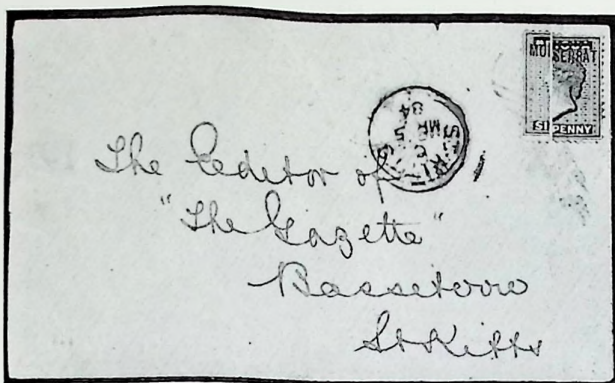 MO SERRAT
SI PENNY
ST. KIT
C
MR 5
84
The Editor of
"The Gazette"
Basseterre
St Kitts